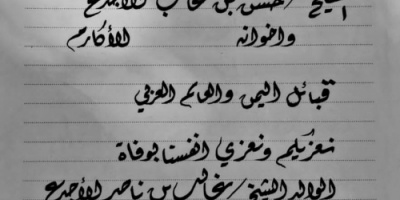 الشيخ / حسن بن غالب الأجدع
واخوانه الأكارم
قبائل اليمن والعالم العربي
نعزيكم ونعزي انفسنا بوفاة
الوالد الشيخ / غالب بن ناصر الأجدع